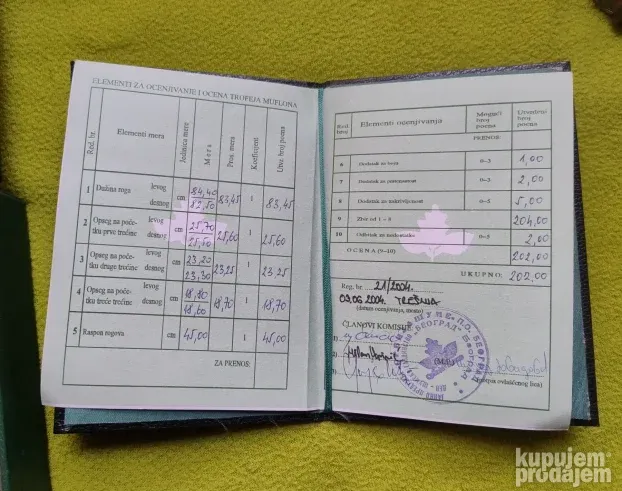 ELEMENTI ZA OCENJIVANJE I OCENA TROFEJA MUFLONA
Red. br. Elementi mera Jedinica mere Mera Pros. mera Koeficijent Utvr. broj poena
1 Dužina roga levog desnog cm 84,40 82,50 83,45 1 83,45
2 Opseg na početku prve trećine levog desnog cm 25,70 25,50 25,60 1 25,60
3 Opseg na početku druge trećine levog desnog cm 23,20 23,30 23,25 1 23,25
4 Opseg na početku treće trećine levog desnog cm 18,80 18,60 18,70 1 18,70
5 Raspon rogova cm 45,00 1 45,00
ZA PRENOS:
Red. broj Elementi ocenjivanja Mogući broj poena Utvrđeni broj poena
PRENOS:
6 Dodatak za boju 0-3 1,00
7 Dodatak za 0-3 2,00
8 Dodatak za 0-5 5,00
9 Zbir od 1 - 8 204,00
10 Odbitak za nedostatke 0-5 2,00
OCENA (9-10) 202,00
UKUPNO: 202,00
Reg. br. 21/2004.
09.06 2004. TREŠNJA
(datum ocenjivanja, mesto)
ČLANOVI KOMISIJE:
1)
2)
3)
(M.P.)
(potpis ovlašćenog lica)
БЕОГРАД
kupujem
prodajem